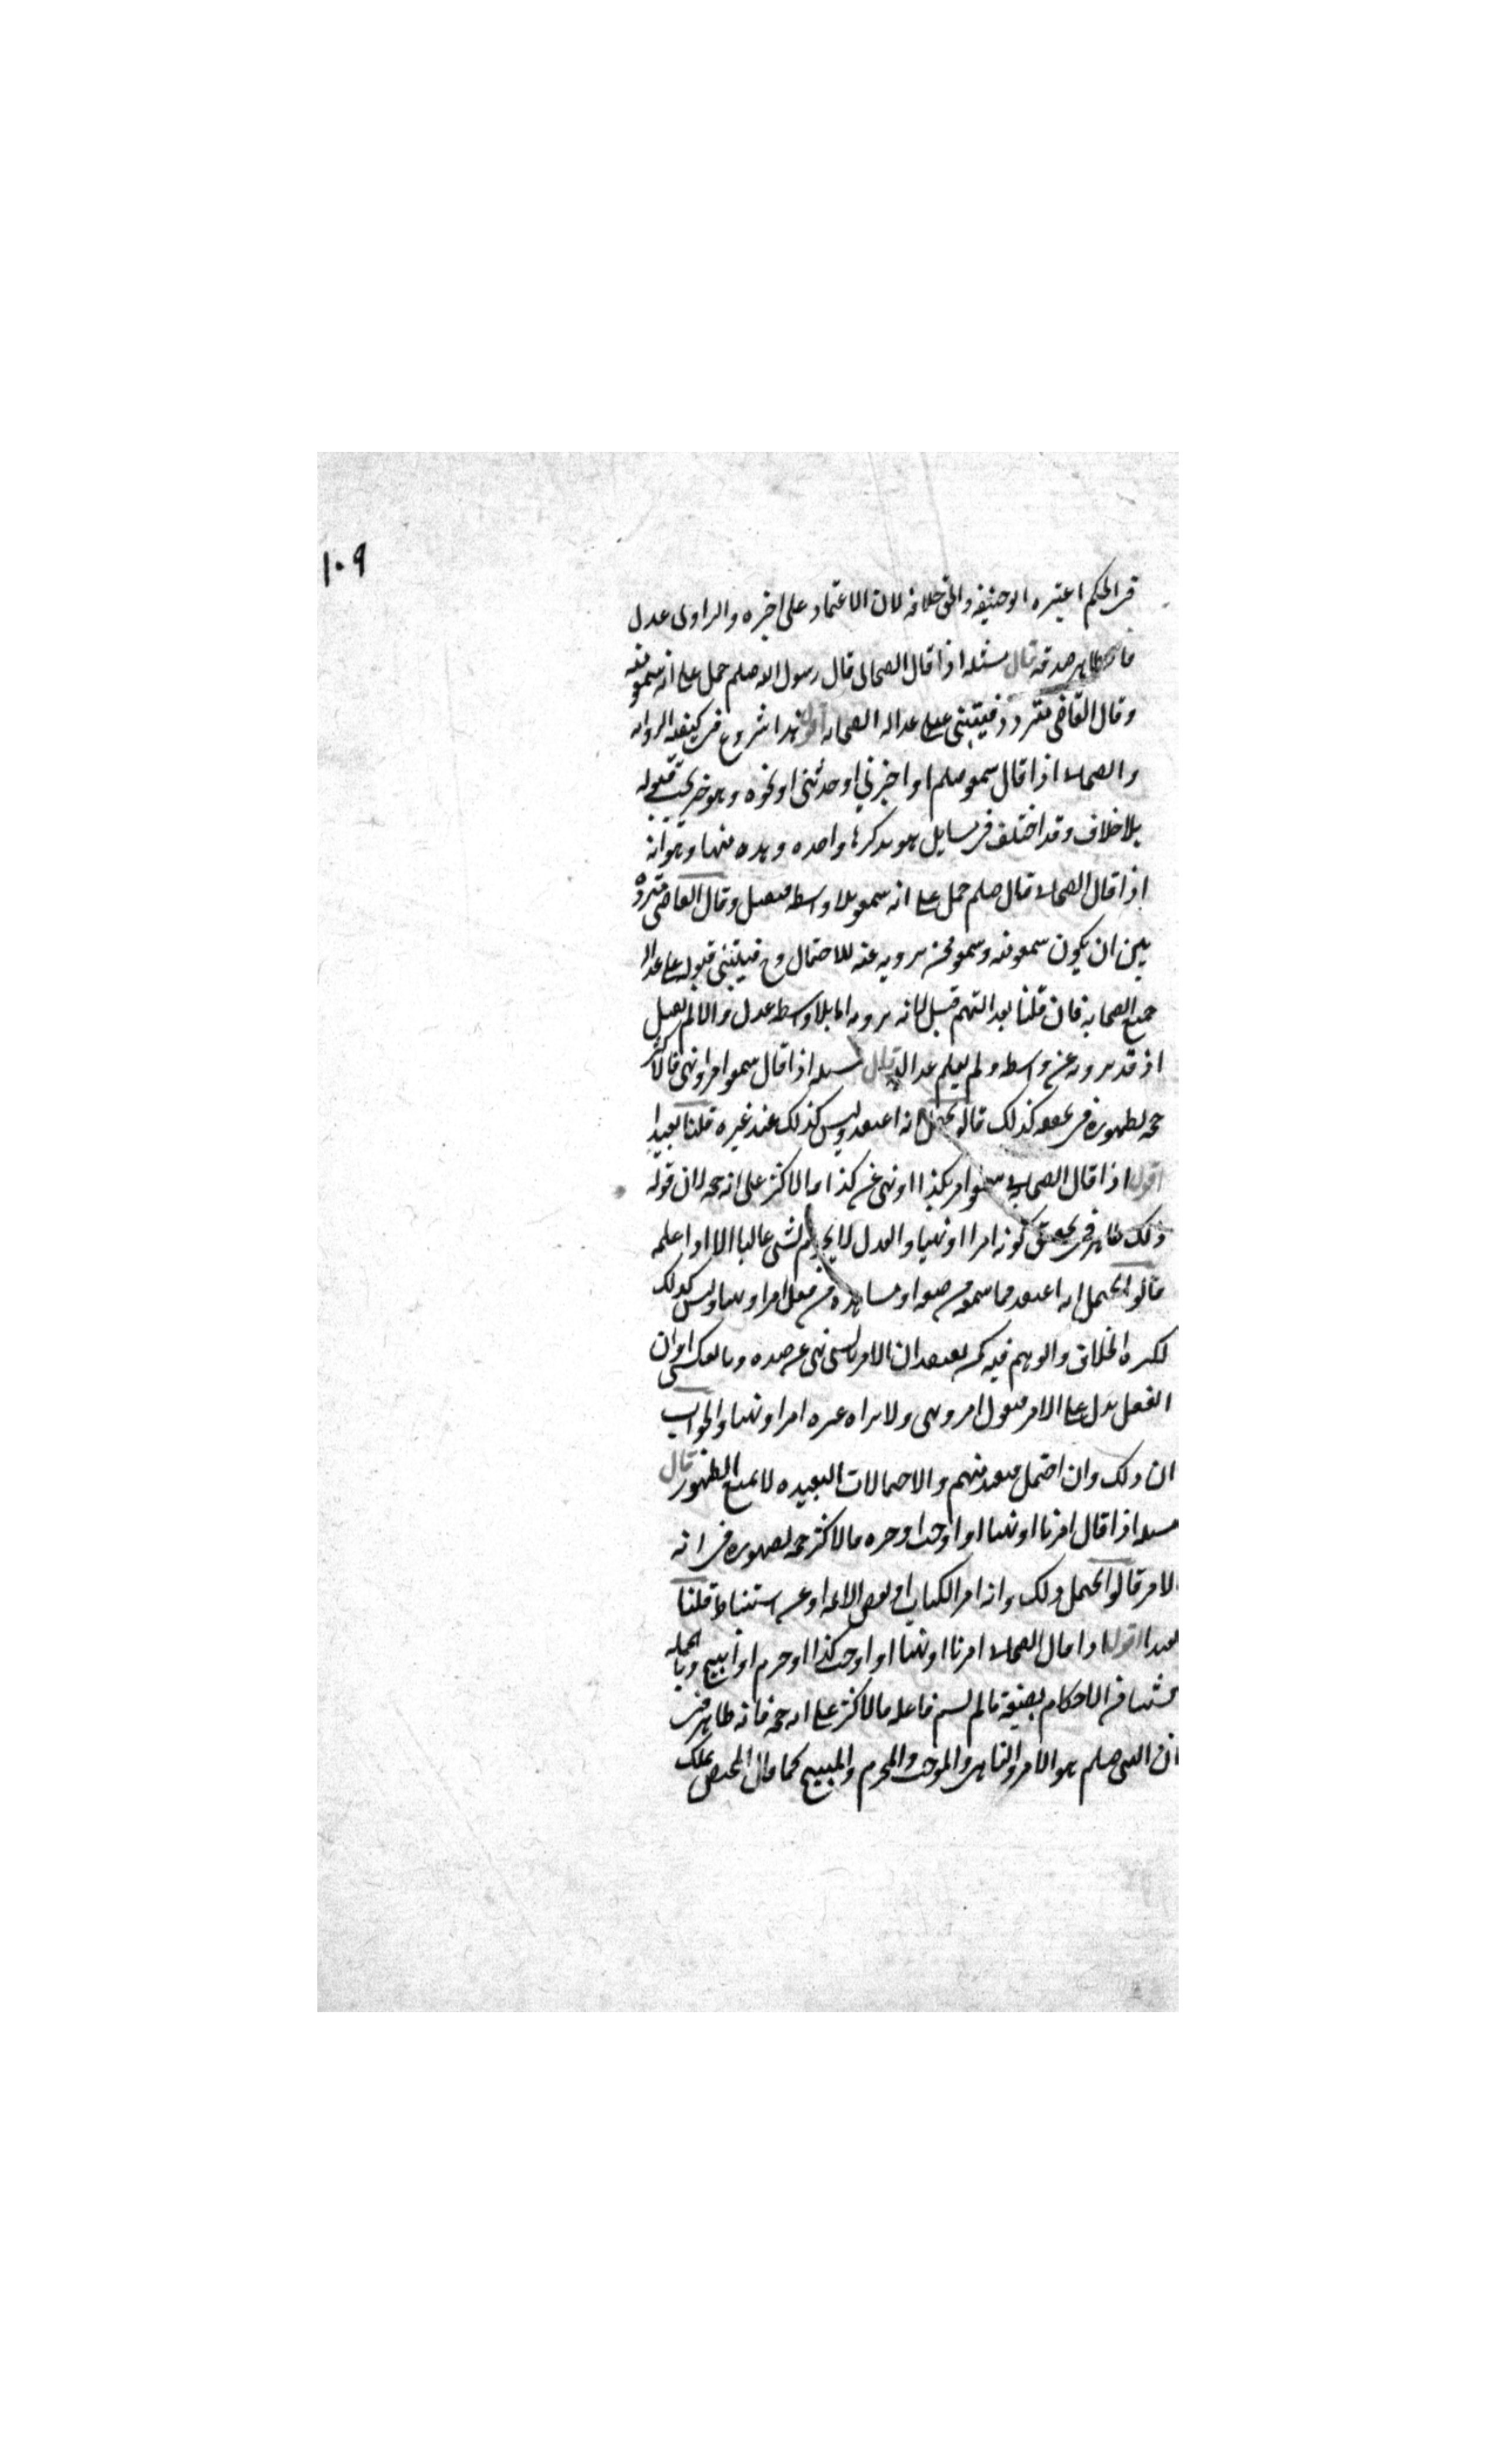 ١٠٩
في الحكم اعتبره ابو حنيفه والحق خلافه لان الاعتماد على خبره والراوى عدل
فالظاهر صدقه قال مسئله اذا قال الصحابى قال رسول الله صلعم حمل على انه سمعه منه
وقال القاضى متردد فيبتنى على عداله الصحابه اقول هذا شروع فى كيفيه الروايه
والصحابى اذا قال سمعته صلعم او اخبرني او حدثنى او نحوه وهو خبر يجب قبوله
بلا خلاف وقد اختلف فى مسايل هو يذكرها واحده واحده منها وهو انه
اذا قال الصحابى قال صلعم حمل على انه سمعه بلا واسطه فيقبل وقال القاضى متردد
بين ان يكون سمعه منه وسمعه ممن يرويه عنه للاحتمال وح فيبتنى قبوله على عداله
جميع الصحابه فان قلنا بعدالتهم قبل لانه يرويه اما بلا واسطه عدل والا لم يقبل
اذ قد يرويه عن واسطه ولم يعلم عدالته قال مسئله اذا قال سمعته امر او نهى فالاكثر
حجه لظهوره فى تحققه كذلك قالوا يحتمل انه اعتقده وليس كذلك عند غيره قلنا بعيد
اقول اذا قال الصحابى سمعته امر بكذا او نهى عن كذا فالاكثر على انه حجه لان قوله
ذلك ظاهر فى تحقق كونه امرا او نهيا والعدل لا يجزم لشى غالبا الا اذا علمه
قالوا يحتمل انه اعتقد مما سمع من صيغه او مشاهده من فعل امرا او نهيا وليس كذلك
لكثره الخلاف والوهم فيه كمن يعتقد ان الامر بالشى نهى عن ضده وبالعكس او ان
الفعل يدل على الامر فيقول امر ونهى ولا يراه غيره امرا او نهيا والجواب
ان ذلك وان احتمل فبعيد منهم والاحتمالات البعيده لا تمنع الظهور قال
مسئله اذا قال امرنا او نهينا او اوجب او حرم فالاكثر حجه لظهوره فى انه
الامر قالوا يحتمل ذلك وانه امر الكتاب او بعض الائمه او عن استنباط قلنا
بعيد اقول اذا قال الصحابى امرنا او نهينا او اوجب كذا او حرم او ابيح وبالجمله
شيئا من الاحكام بصيغة ما لم يسم فاعله فالاكثر على انه حجه فانه ظاهر فى
ان النبى صلعم هو الامر والناهى والموجب والمحرم والمبيح كما قال المختص بملك